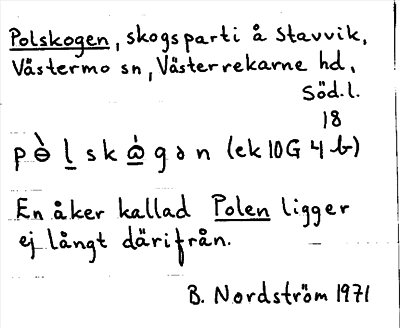 Polskogen, skogsparti å Stavvik,
Västermo sn, Västerrekarne hd,
Söd.l.
18
pɵ̀l̲skὼ̲gən (ek 10G 4 b)
En åker kallad Polen ligger
ej långt därifrån.
B. Nordström 1971